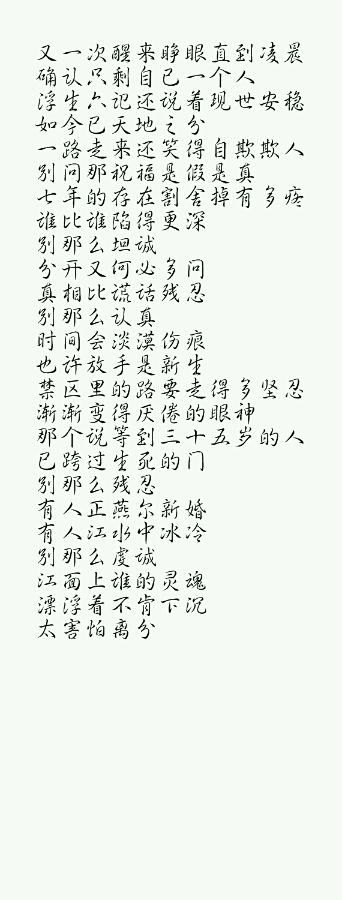 又一次醒来睁眼直到凌晨
确认只剩自己一个人
浮生六记还说着现世安稳
如今已天地之分
一路走来还笑得自欺欺人
别问那祝福是假是真
七年的存在割舍掉有多疼
谁比谁陷得更深
别那么坦诚
分开又何必多问
真相比谎话残忍
别那么认真
时间会淡漠伤痕
也许放手是新生
禁区里的路要走得多坚忍
渐渐变得厌倦的眼神
那个说等到三十五岁的人
已跨过生死的门
别那么残忍
有人正燕尔新婚
有人江水中冰冷
别那么虔诚
江面上谁的灵魂
漂浮着不肯下沉
太害怕离分